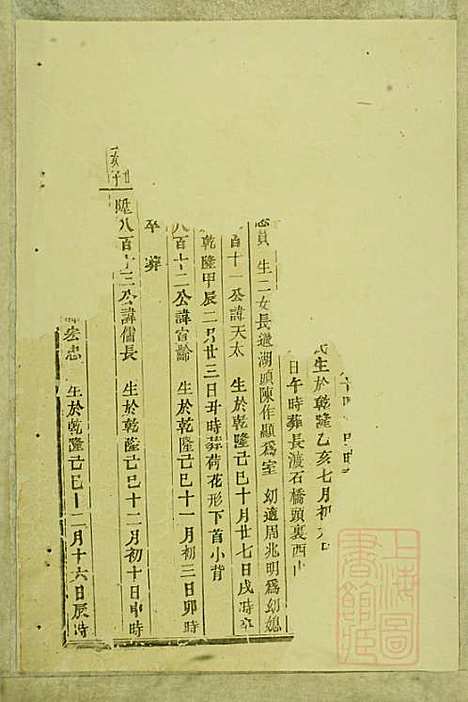 氏生於乾隆乙亥七月初九日
日午時葬長渡石橋頭裏西山
生二女長適湖頭陳作顯為室 幼適周兆明為幼媳
百十一公諱天太 生於乾隆己巳十月廿七日戌時卒
乾隆甲辰二月廿三日丑時葬荷花形下首小背
八百十二公諱宣齡 生於乾隆己巳十一月初三日卯時
卒葬
八百十三公諱儒長 生於乾隆己巳十二月初十日申時
宏志 生於乾隆己巳十二月十六日辰時
上海圖書館藏